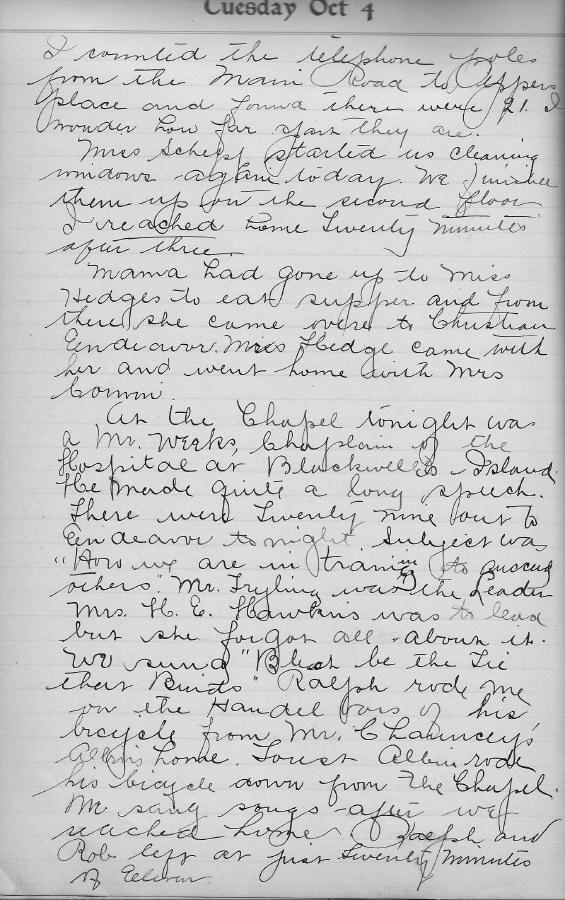 Tuesday Oct 4
I counted the telephone poles
from the Main Road to
place and found there were 21. I
wonder how far apart they are.
Miss started us cleaning
windows again today. We finished
them up on the second floor
I reached home Twenty Minutes
after three.
Mama had gone up to Miss
Hedges to eat supper and from
there she came over to Christian
Eendeavor. Miss Hedge came with
her and went home with Mrs
Corwin.
At the Chapel tonight was
a Mr. Weeks, Chaplain of the
Hospital at Blackwell's Island.
He Made quite a long speech.
There were Twenty nine out to
Eendeavor tonight. Subject was
"How we are in training to
others". Mr. Tryling was the Leader
Mrs. H. E. Hawkins was to lead
but she forgot all about it.
We sung "Blest be the Tie
that Binds" Ralph rode me
on the Handel bars of his
bicycle from Mr. Chauncey's
Albin's home. Foust Albin rode
his bicycle down from The Chapel.
We sang songs after we
reached home. Ralph and
Rob left at just Twenty Minutes
of Eeleven.